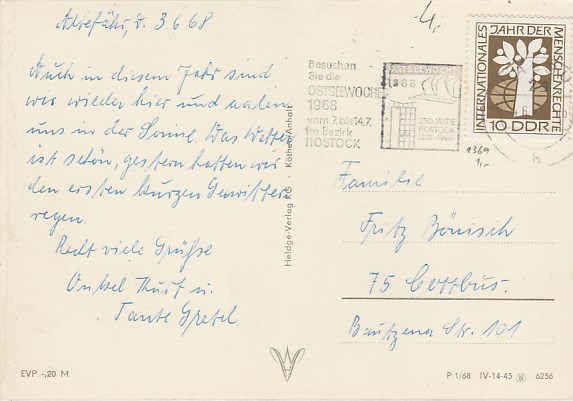 Altefähr, d. 3.6.68
Auch in diesem Jahr sind
wir wieder hier und aalen
uns in der Sonne. Das Wetter
ist schön, gestern hatten wir
den ersten kurzen Gewitter
regen.
Recht viele Grüße
Onkel Kurt u.
Tante Gretel.
EVP -,20 M
Heldge-Verlag KG · Köthen/Anhalt
4,
Besuchen
Sie die
OSTSEEWOCHE
1968
vom 7. bis 14.7.
im Bezirk
ROSTOCK
OSTSEEWOCHE
1968
750 JAHRE
ROSTOCK
1218-1968
INTERNATIONALES
JAHR DER
MENSCHENRECHTE
10 DDR
1369
1,-
Familie
Fritz Bönisch
75 Cottbus.
Bautzener Str. 101
P 1/68 IV-14-45 6256